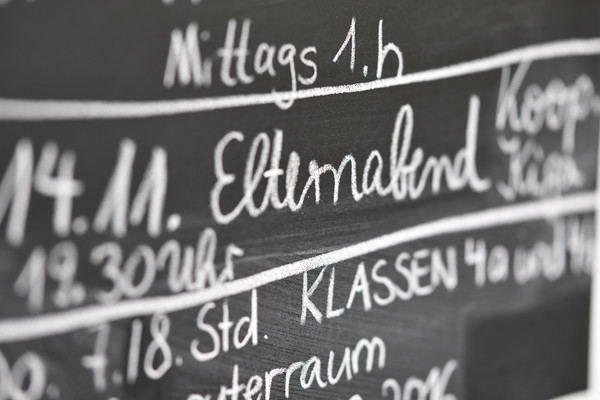 Mittags 1.h
14.11. Elternabend Koop.
19.30 Uhr
7.18. Std. KLASSEN 4a und